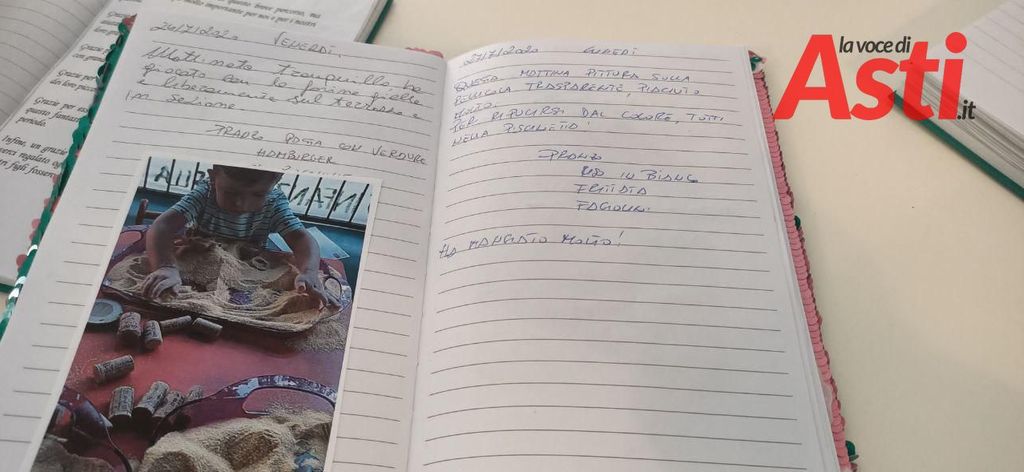 questo breve percorso, ma
molto importante per noi e per i nostri
Grazie
con gra
Grazie pe
da loro picco
Grazie per ess
punto fantas
periodo.
Infine, un grazie
averci regalato og
figli fosser
24/7/2020 VENERDÌ.
Mattinata tranquilla, ha
giocato con la farina gialla
e liberamente sul terrazzo e
in sezione.
PRANZO PASTA CON VERDURE
HAMBURGER
27/7/2020 LUNEDÌ
QUESTA MATTINA PITTURA SULLA
PELLICOLA TRASPARENTE, PIACIUTO
MOLTO.
PER RIPULIRSI DAL COLORE, TUTTI
NELLA PISCINETTA!
PRANZO
RISO IN BIANCO
FRITTATA
FAGIOLINI
HA MANGIATO MOLTO!
la voce di
Asti
.it